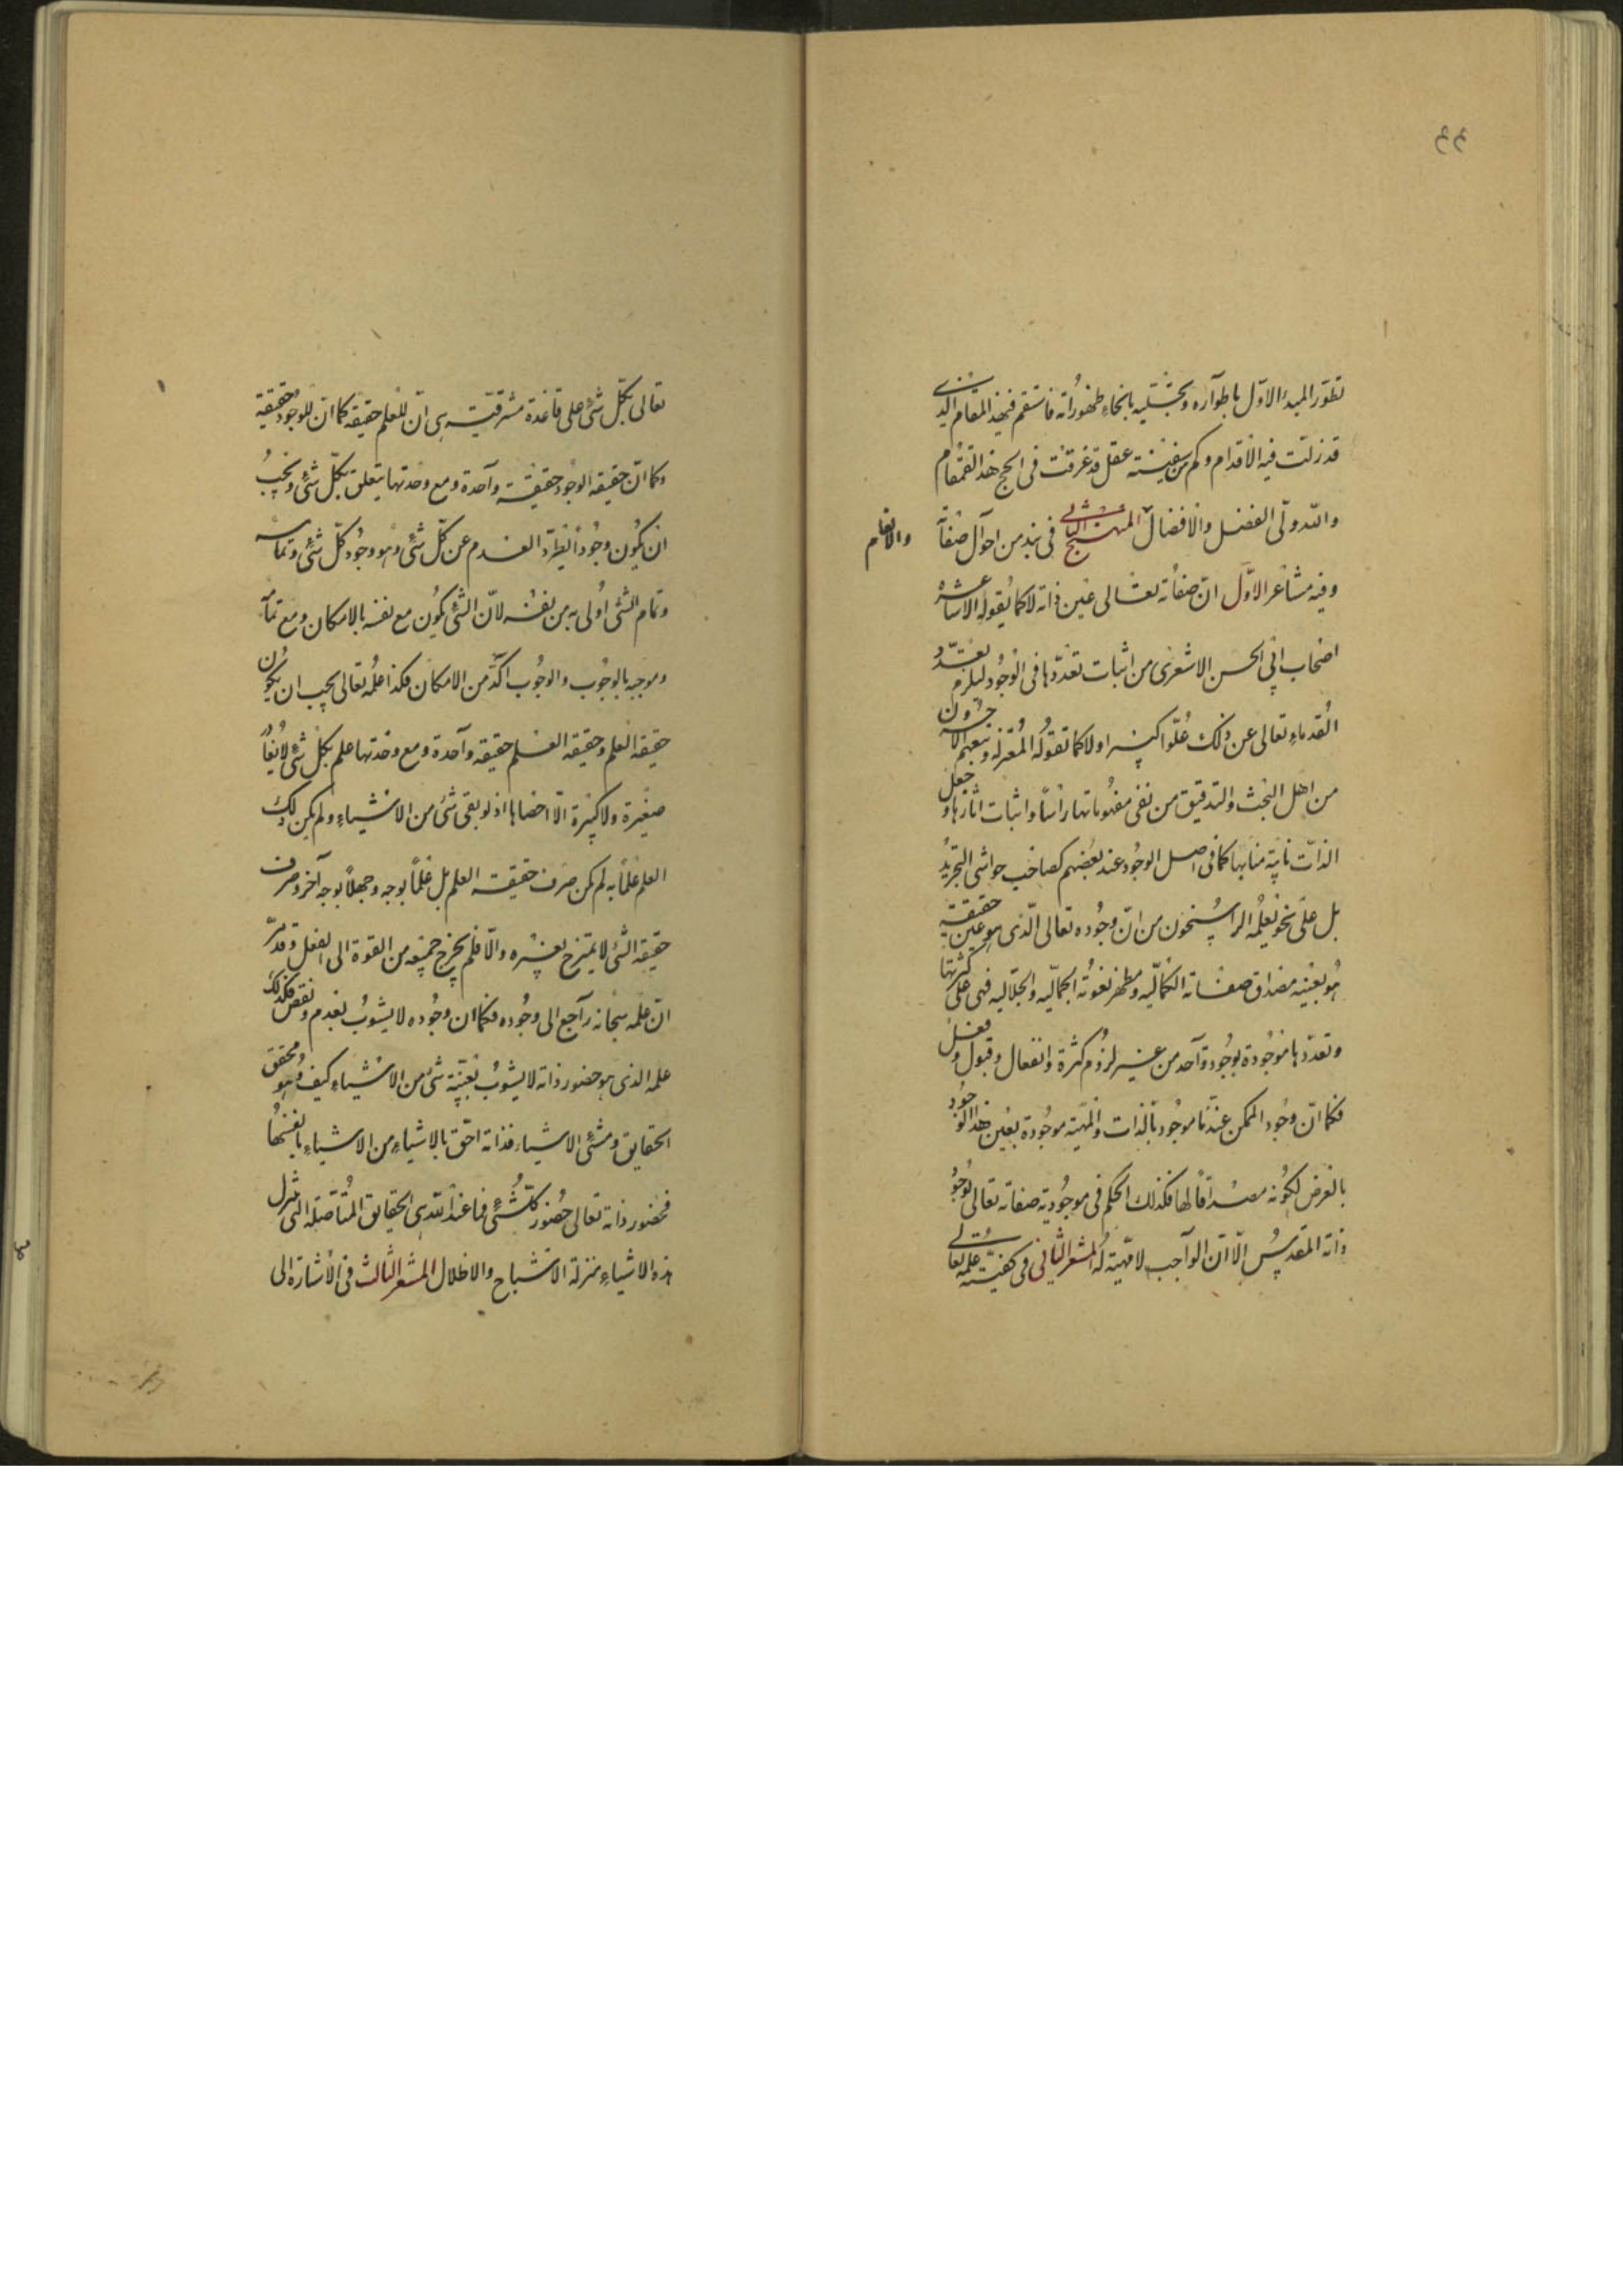 ٤٤
تطوّر المبدء الاوّل باطواره وتجلّیه بانحاء ظهوراته فاستقم فی هذا المقام الذی
قد زلت فیه الاقدام وکم من سفینة عقل قد غرقت فی لجج هذا القمقام
والله ولّی الفضل والافضال والانعام المنهج الثانی فی نبذ من احوال صفاته
وفیه مشاعر الاوّل انّ صفاته تعالی عین ذاته لا کما یقوله الاشاعرة
اصحاب ابی الحسن الاشعری من اثبات تعدّدها فی الوجود لیلزم تعدّد
القدماء تعالی عن ذلک علوّا کبیرا ولا کما تقوله المعتزلة وتبعهم الاخرون
من اهل البحث والتدقیق من نفی مفهوماتها رأساً واثبات اثارها وجعل
الذات نایبة منابها کما فی اصل الوجود عند بعضهم کصاحب حواشی التجرید
بل علی نحو یعلمه الراسخون من انّ وجوده تعالی الّذی هو عین حقیقته
هو بعینه مصداق صفاته الکمالیّه ومظهر نعوته الجمالیّه والجلالیه فهی علی کثرتها
وتعدّدها موجودة بوجود واحد من غیر لزوم کثرة وانفعال وقبول وفعل
فکما انّ وجود الممکن عندنا موجود بالذات والمهیّة موجودة بعین هذا الوجود
بالعرض لکونه مصداقاً لها فکذلک الحکم فی موجودیة صفاته تعالی بوجود
ذاته المقدس الّا انّ الواجب لا مهیّة له المشعر الثانی فی کیفیّة علمه تعالی
تعالی بکلّ شئ علی قاعدة مشرقیّة هی انّ للعلم حقیقة کما انّ للوجود حقیقة
وکما انّ حقیقة الوجود حقیقة واحدة ومع وحدتها یتعلق بکلّ شئ ویجب
ان یکون وجوداً یطرد العدم عن کلّ شئ وهو وجود کلّ شئ وتمامه
وتمام الشئ اولی به من نفسه لانّ الشئ یکون مع نفسه بالامکان ومع تمامه
وموجبه بالوجوب والوجوب اکّد من الامکان فکذا علمه تعالی یجب ان یکون
حقیقة العلم وحقیقة العلم حقیقة واحدة ومع وحدتها علم بکلّ شئ لا یغادر
صغیرة ولا کبیرة الّا احصاها اذ لو بقی شئ من الاشیاء ولم یکن ذلک
العلم علماً به لم یکن صرف حقیقة العلم بل علماً بوجه وجهلاً بوجه آخر وصرف
حقیقة الشئ لا یمتزج بغیره والّا فلم یخرج جمیعه من القوة الی الفعل وقد مرّ
انّ علمه سبحانه راجع الی وجوده فکما ان وجوده لا یشوب بعدم ونقص فکذلک
علمه الذی هو حضور ذاته لا یشوب بغیبة شئ من الاشیاء کیف وهو محقق
الحقایق ومشئ الاشیاء فذاته احقّ بالاشیاء من الاشیاء بانفسها
فحضور ذاته تعالی حضور کلّ شئ فما عند الله هی الحقایق المتأصّلة التی تنزل
هذه الاشیاء منزلة الاشباح والاظلال المشعر الثالث فی الاشارة الی